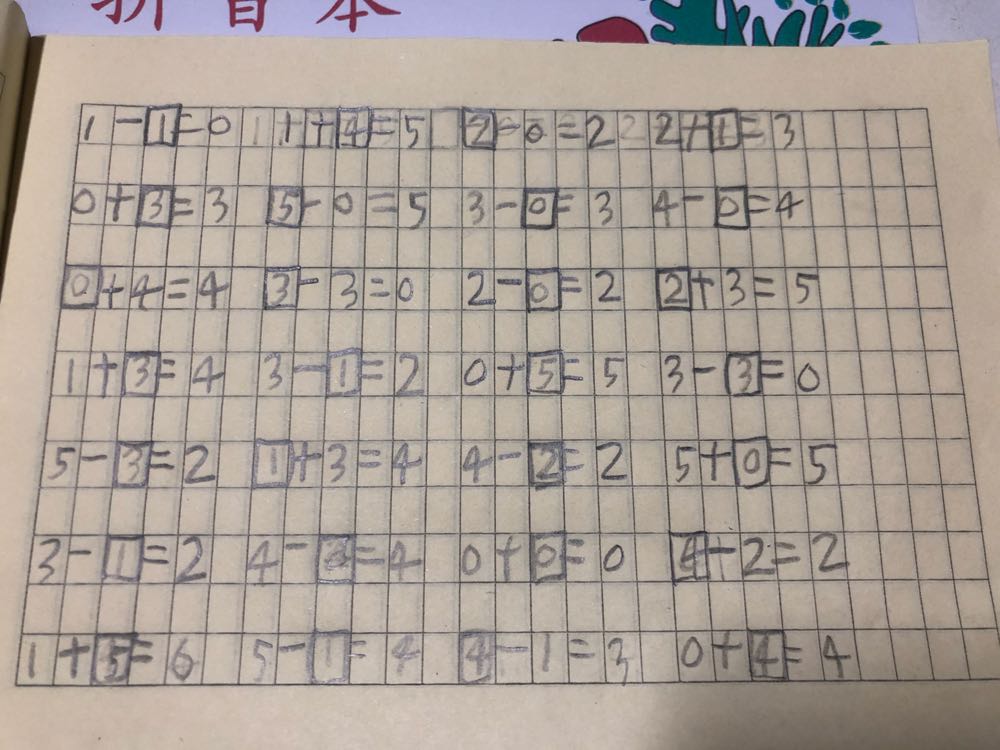 拼音本
1-1=0 1+4=5 2-0=2 2+1=3
0+3=3 5-0=5 3-0=3 4-0=4
0+4=4 3-3=0 2-0=2 2+3=5
1+3=4 3-1=2 0+5=5 3-3=0
5-3=2 1+3=4 4-2=2 5+0=5
3-1=2 4-=4 0+0=0 4-2=2
1+5=6 5-1=4 4-1=3 0+4=4